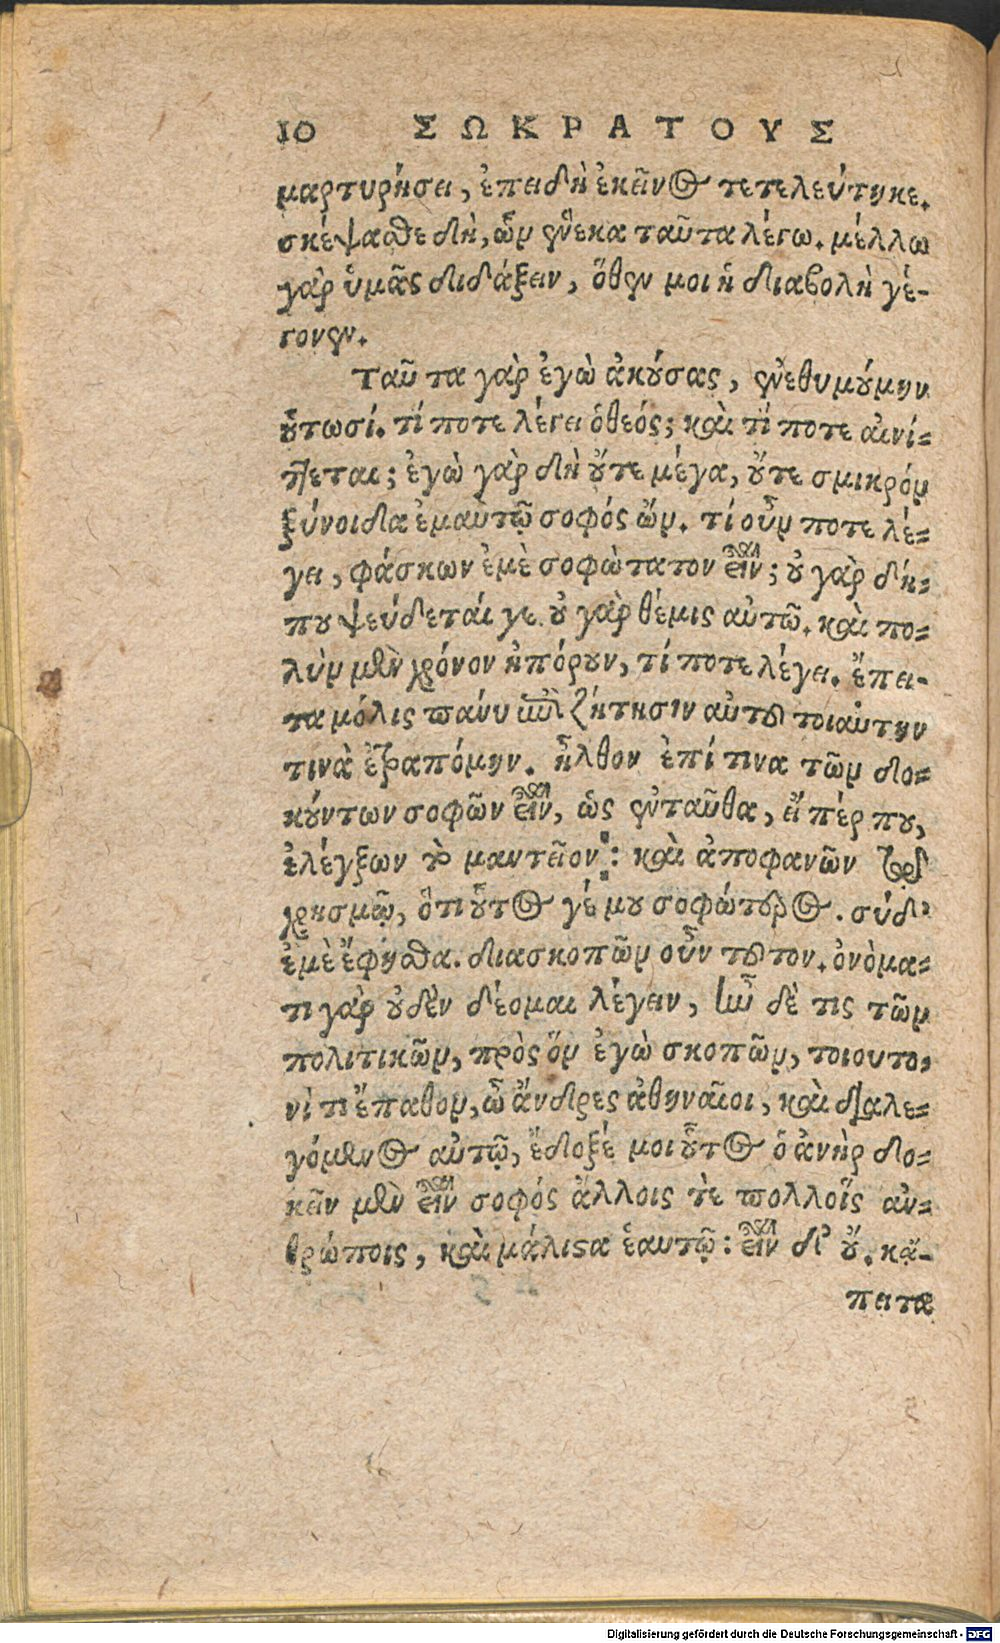 10 ΣΩΚΡΑΤΟΥΣ
μαρτυρήσει, ἐπειδὴ ἐκεῖνος τετελεύτηκε.
σκέψασθε δὴ, ὧν ἕνεκα ταῦτα λέγω. μέλλω
γὰρ ὑμᾶς διδάξειν, ὅθεν μοι ἡ διαβολὴ γέ-
γονεν.
Ταῦτα γὰρ ἐγὼ ἀκούσας, ἐνεθυμούμην
οὑτωσί. τί ποτε λέγει ὁ θεός; καὶ τί ποτε αἰνί=
τεται; ἐγὼ γὰρ δὴ οὔτε μέγα, οὔτε σμικρὸν
ξύνοιδα ἐμαυτῷ σοφὸς ὤν. τί οὖν ποτε λέ=
γει, φάσκων ἐμὲ σοφώτατον εἶναι; οὐ γὰρ δή=
που ψεύδεταί γε. οὐ γὰρ θέμις αὐτῷ. καὶ πο=
λὺν μὲν χρόνον ἠπόρουν, τί ποτε λέγει. ἔπει-
τα μόλις πάνυ ἐπὶ ζήτησιν αὐτοῦ τοιαύτην
τινὰ ἐτραπόμην. ἦλθον ἐπί τινα τῶν δο=
κούντων σοφῶν εἶναι, ὡς ἐνταῦθα, εἴ πέρ που,
ἐλέγξων τὸ μαντεῖον: καὶ ἀποφανῶν τῷ
χρησμῷ, ὅτι οὗτος γέ μου σοφώτερος. σὺ δ'
ἐμὲ ἔφησθα. διασκοπῶν οὖν τοῦτον. ὀνόμα=
τι γὰρ οὐδὲν δέομαι λέγειν, ἦν δὲ τις τῶν
πολιτικῶν, πρὸς ὃν ἐγὼ σκοπῶν, τοιουτο,
νί τι ἔπαθον, ὦ ἄνδρες ἀθηναῖοι, καὶ διαλε=
γόμενος αὐτῷ, ἔδοξέ μοι οὗτος ὁ ἀνὴρ δο=
κεῖν μὲν εἶναι σοφός ἄλλοις τὲ πολλοῖς ἀν=
θρώποις, καὶ μάλιστα ἑαυτῷ: εἶναι δ' οὔ. κᾄ-
πειτα
Digitalisierung gefördert durch die Deutsche Forschungsgemeinschaft - DFG